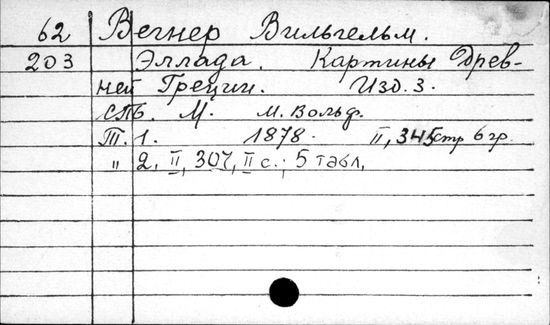 62 Вегнер Вильгельм.
203 Эллада. Картины Древ-
ней Греции. Изд. 3.
СПб. М. М. Вольф.
Т. 1. 1878. II, 345 стр 6 гр.
" 2, II, 307, II с.; 5 табл,